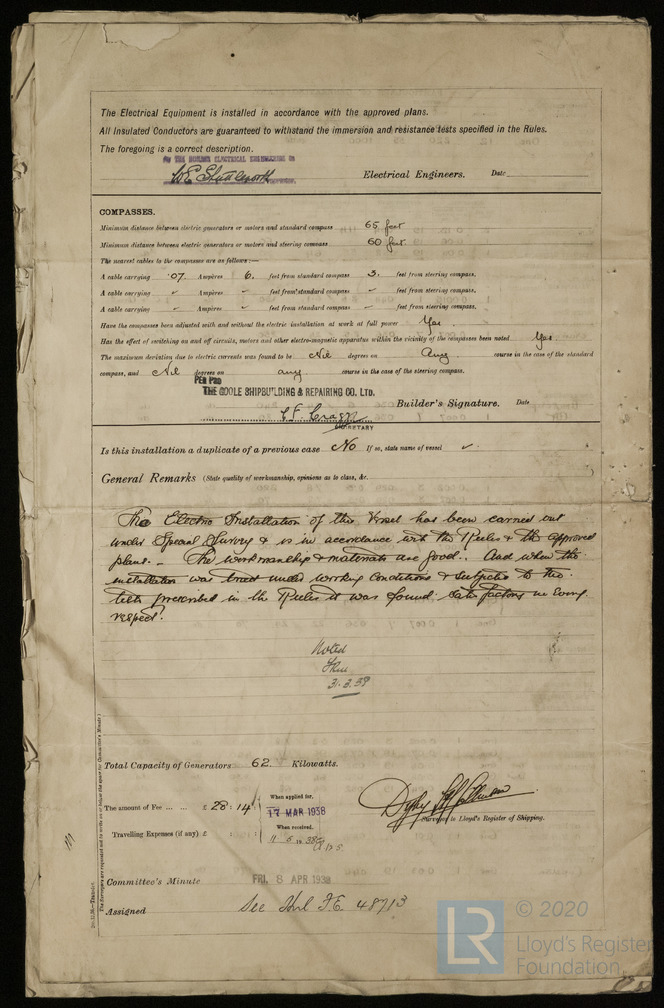 The Electrical Equipment is installed in accordance with the approved plans.
All Insulated Conductors are guaranteed to withstand the immersion and resistance tests specified in the Rules.
The foregoing is a correct description.
Electrical Engineers. Date
COMPASSES.
Minimum distance between electric generators or motors and standard compass 65 feet
Minimum distance between electric generators or motors and steering compass 60 feet
The nearest cables to the compasses are as follows:—
A cable carrying .07 Ampères 6. feet from standard compass 3. feet from steering compass.
A cable carrying Ampères feet from standard compass feet from steering compass.
A cable carrying Ampères feet from standard compass feet from steering compass.
Have the compasses been adjusted with and without the electric installation at work at full power Yes
Has the effect of switching on and off circuits, motors and other electro-magnetic apparatus within the vicinity of the compasses been noted Yes.
The maximum deviation due to electric currents was found to be Nil degrees on Any course in the case of the standard
compass, and Nil degrees on any course in the case of the steering compass.
PER PRO
THE GOOLE SHIPBUILDING & REPAIRING CO. LTD.
Builder's Signature. Date
SECRETARY
Is this installation a duplicate of a previous case No If so, state name of vessel
General Remarks (State quality of workmanship, opinions as to class, &c.
The Electric Installation of this Vessel has been carried out
under Special Survey & is in accordance with the Rules & the approved
plans. - The workmanship & materials are good. And when the
installation was tried under working conditions & subjected to the
tests prescribed in the Rules it was found satisfactory in every
respect.
Noted
31.3.38
Total Capacity of Generators 62. Kilowatts.
The amount of Fee ... ... £ 28 : 14 :
When applied for,
17 MAR 1938
When received,
Travelling Expenses (if any) £
Surveyor to Lloyd's Register of Shipping.
Committee's Minute FRI. 8 APR 1938
Assigned See Hul F.E. 48713
© 2020
LR
Lloyd's Register
Foundation